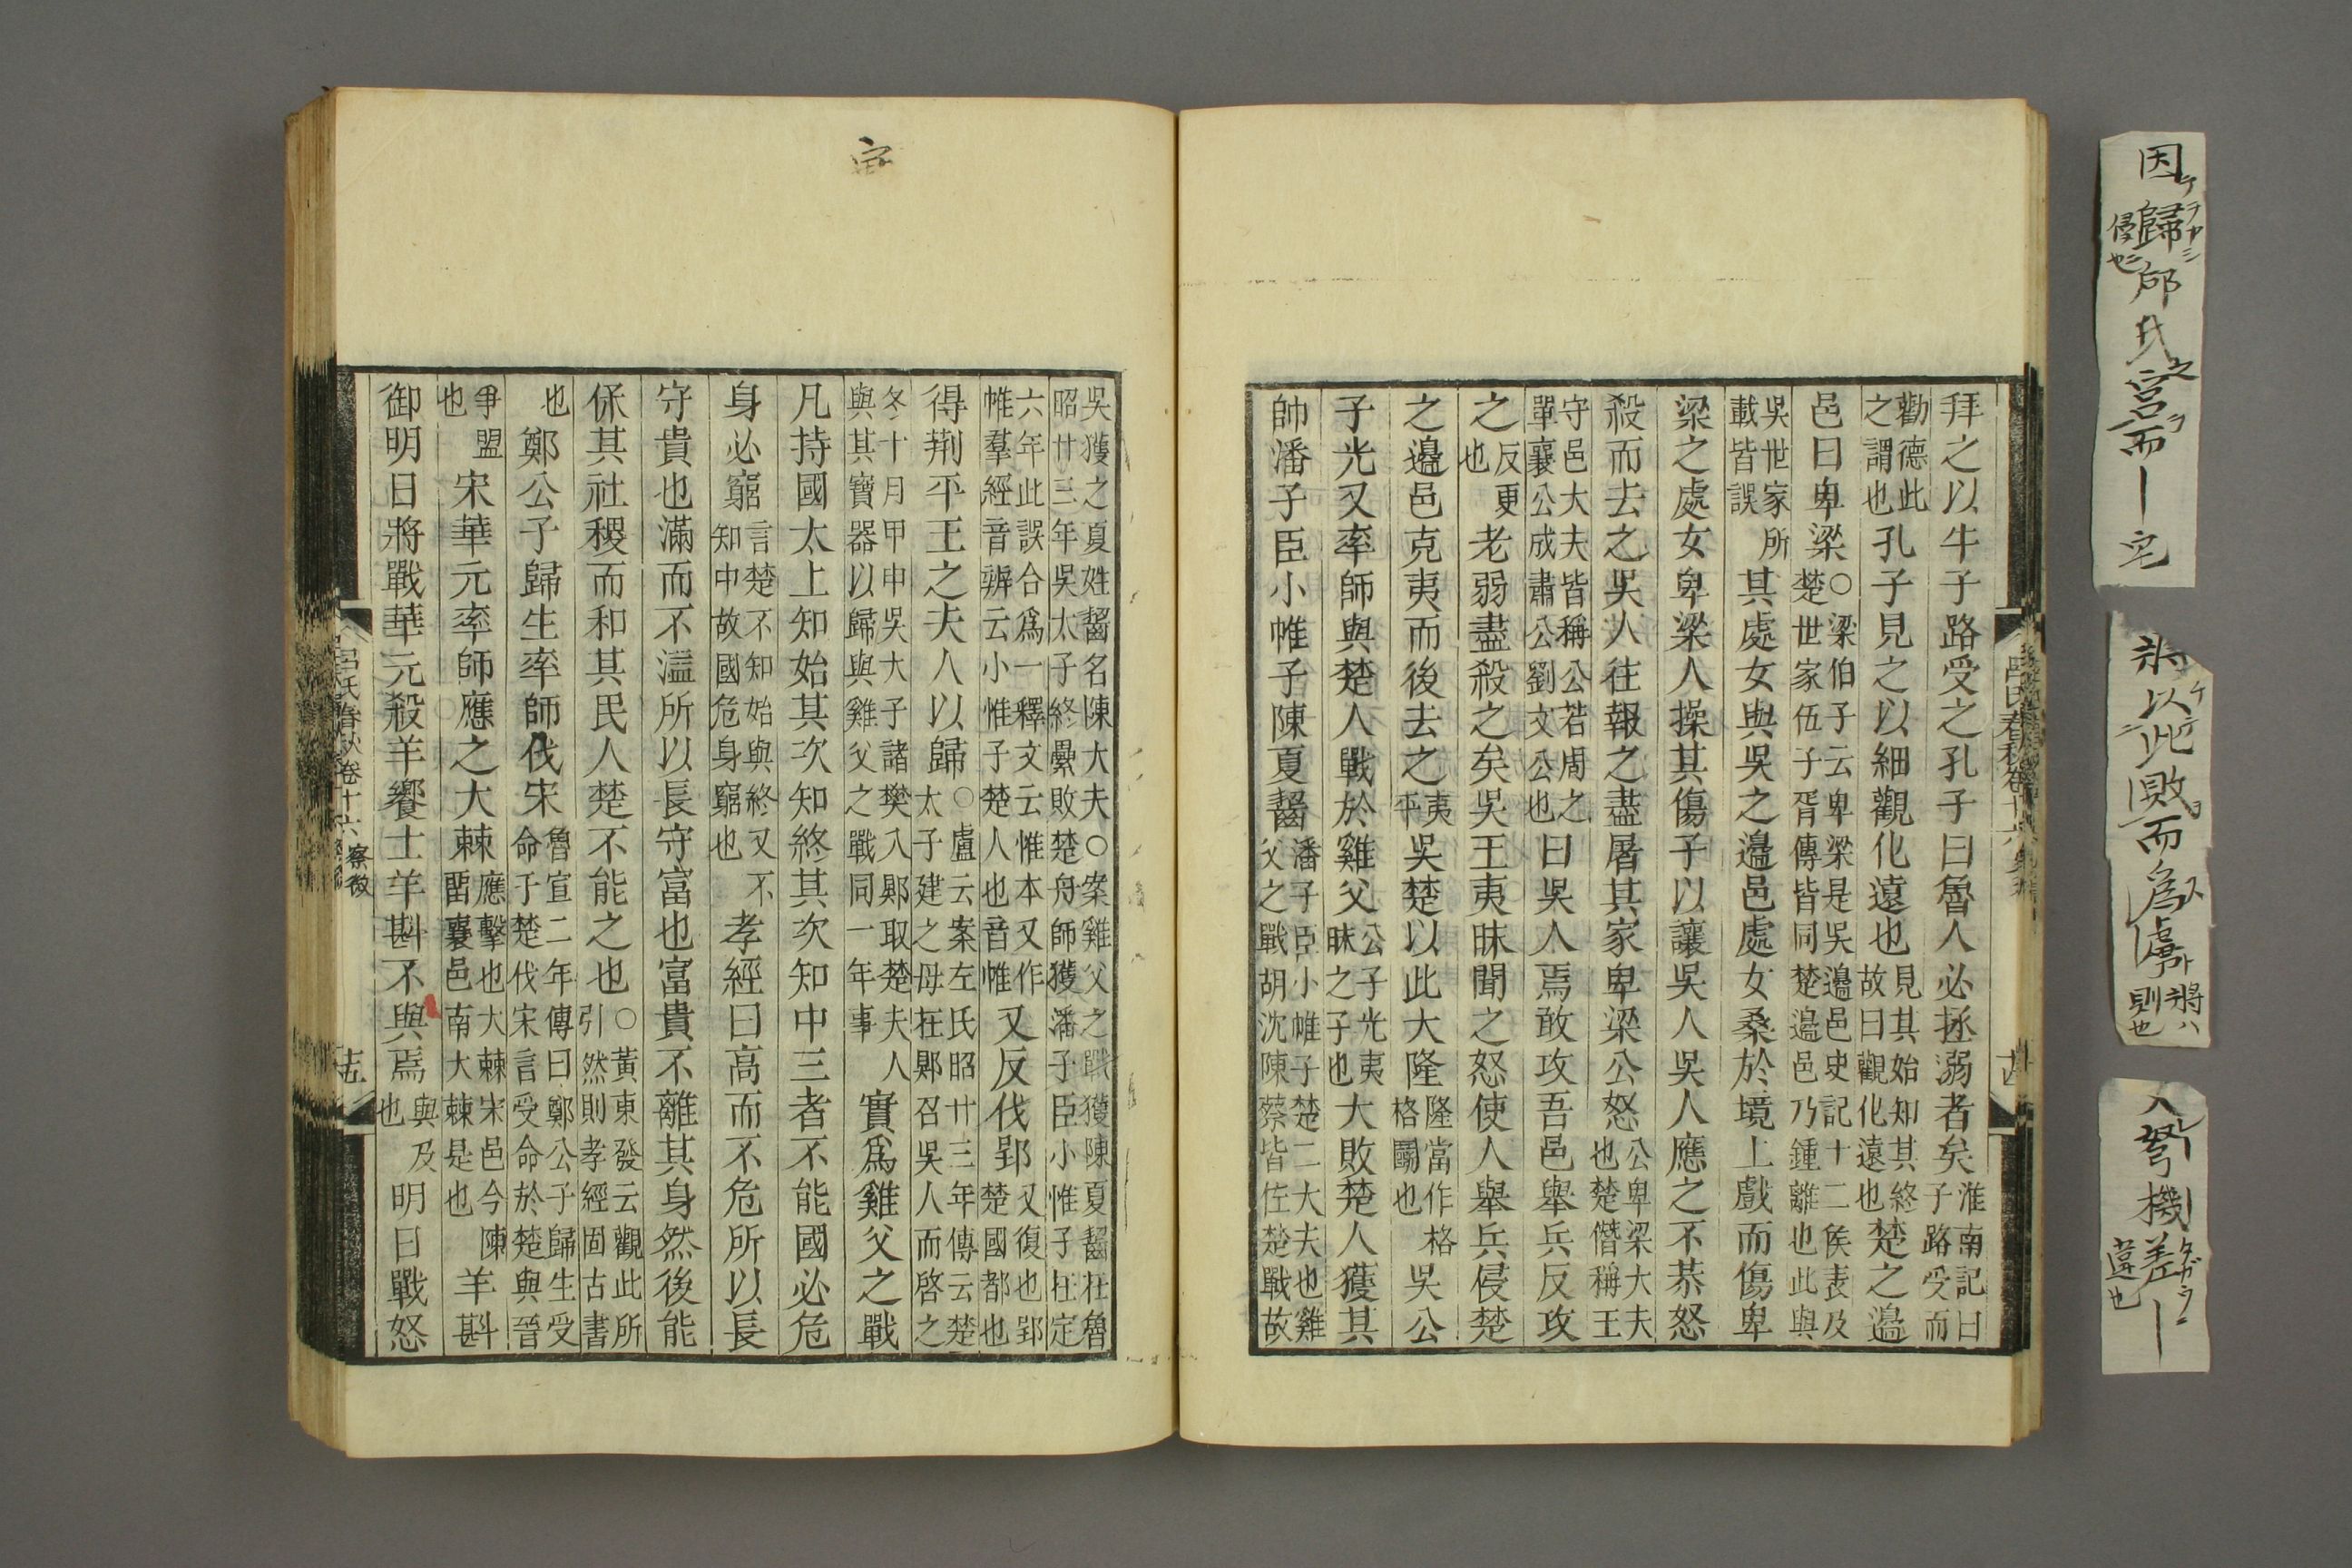 拜之以牛子路受之孔子曰魯人必拯溺者矣淮南記曰子路受而
勸德此之謂也孔子見之以細觀化遠也見其始知其終故曰觀化遠也楚之邊
邑曰卑梁○梁伯子云卑梁是吳邊邑史記十二侯表及楚世家伍子胥傳皆同楚邊邑乃鍾離也此與
吳世家所載皆誤其處女與吳之邊邑處女桑於境上戲而傷卑
梁之處女卑梁人操其傷子以讓吳人吳人應之不恭怒
殺而去之吳人往報之盡屠其家卑梁公怒公卑梁大夫也楚僭稱王
守邑大夫皆稱公若周之單襄公成肅公劉文公也曰吳人焉敢攻吾邑舉兵反攻
之反更也老弱盡殺之矣吳王夷昧聞之怒使人舉兵侵楚
之邊邑克夷而後去之夷平吳楚以此大隆隆當作格格鬭也吳公
子光又率師與楚人戰於雞父公子光夷昧之子也大敗楚人獲其
帥潘子臣小帷子陳夏齧潘子臣小帷子楚二大夫也雞父之戰胡沈陳蔡皆佐楚戰故
吳獲之夏姓齧名陳大夫○案雞父之戰獲陳夏齧在魯昭廿三年吳太子終纍敗楚舟師獲潘子臣小惟子在定
六年此誤合爲一釋文云惟本又作帷羣經音辨云小惟子楚人也音帷又反伐郢又復也郢楚國都也
得荆平王之夫人以歸○盧云案左氏昭廿三年傳云楚太子建之母在郹召吳人而啓之
冬十月甲申吳大子諸樊入郹取楚夫人與其寶器以歸與雞父之戰同一年事實爲雞父之戰
凡持國太上知始其次知終其次知中三者不能國必危
身必窮言楚不知始與終又不知中故國危身窮也孝經曰高而不危所以長
守貴也滿而不溢所以長守富也富貴不離其身然後能
保其社稷而和其民人楚不能之也○黃東發云觀此所引然則孝經固古書
也鄭公子歸生率師伐宋魯宣二年傳曰鄭公子歸生受命于楚伐宋言受命於楚與晉
爭盟也宋華元率師應之大棘應擊也大棘宋邑今陳留襄邑南大棘是也羊斟
御明日將戰華元殺羊饗士羊斟不與焉與及也明日戰怒
呂氏春秋卷十六
察微
十五
因歸郈氏之宮而ー宅
侵也
以此敗而爲虜
將ハ則也
弩機差ー
違也